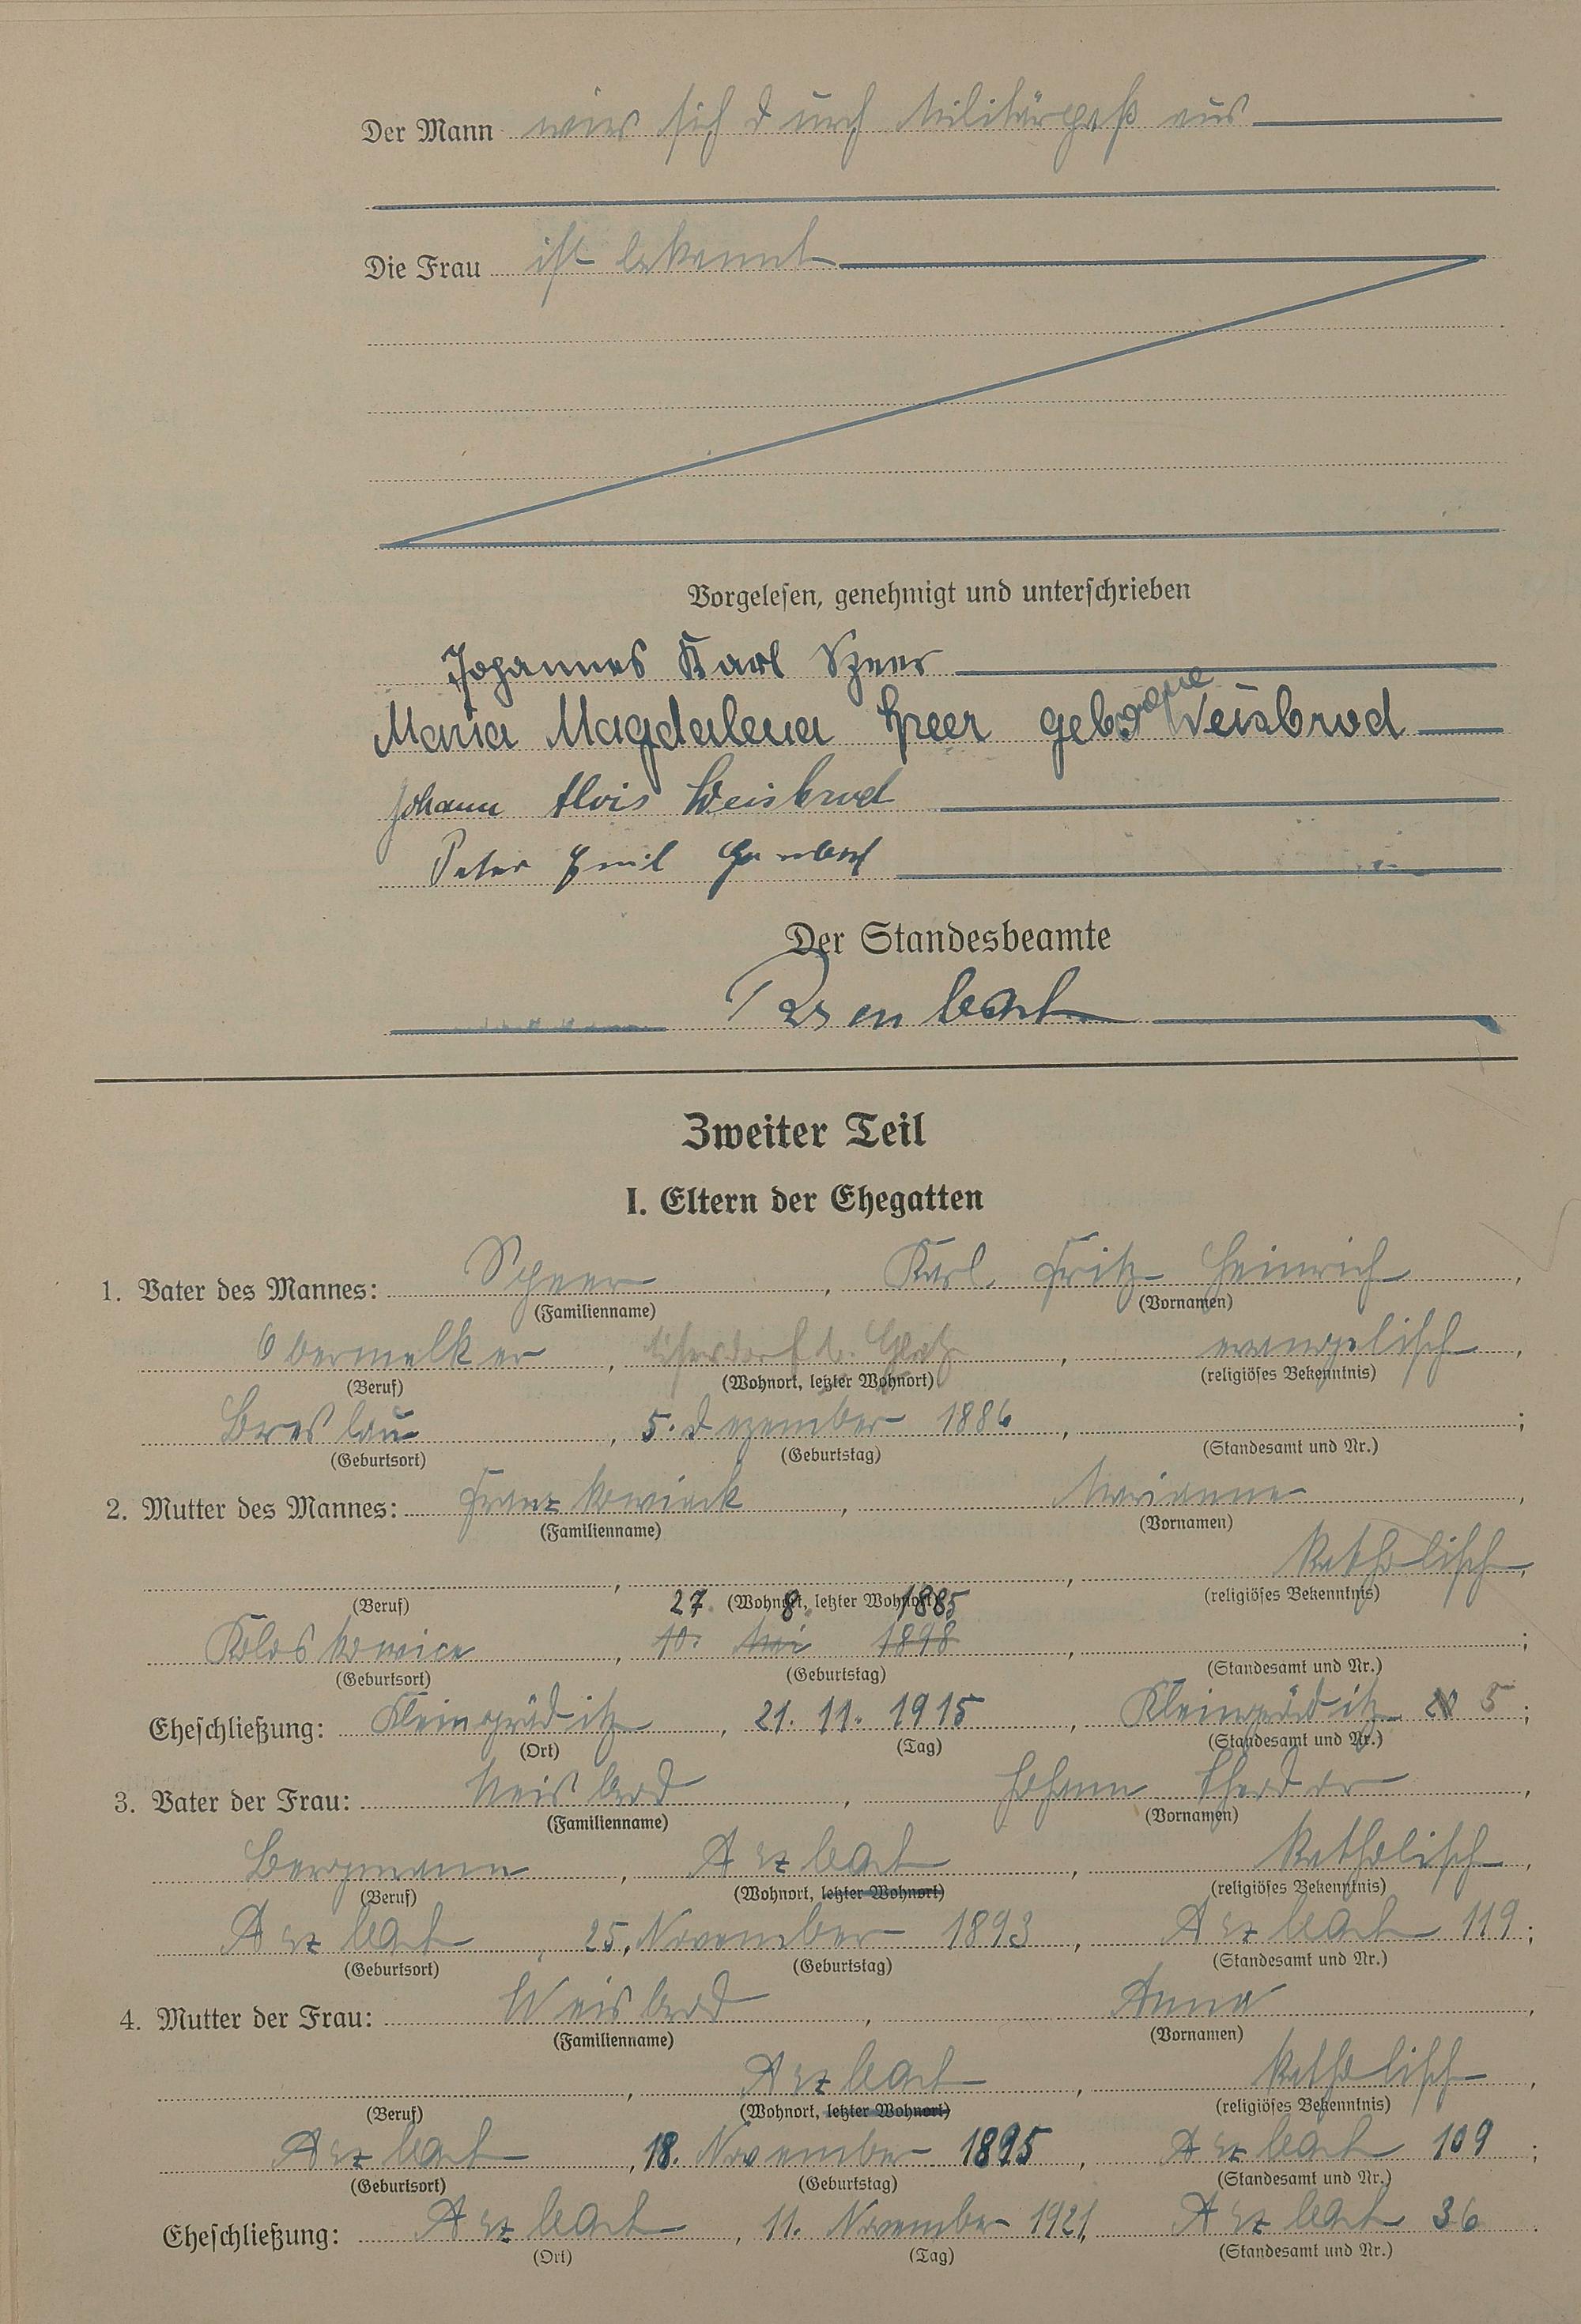 Der Mann wies sich durch Militärpaß aus
Die Frau ist bekannt
Vorgelesen, genehmigt und unterschrieben
Johannes Karl Speer
Maria Magdalena Speer geborene Weisbrod
Johann Alois Weisbrod
Peter Emil
Der Standesbeamte
Zweiter Teil
I. Eltern der Ehegatten
1. Vater des Mannes: Speer, Karl Fritz Heinrich,
(Familienname) (Vornamen)
Obermelker, b. Glatz, evangelisch,
(Beruf) (Wohnort, letzter Wohnort) (religiöses Bekenntnis)
Breslau, 5. Dezember 1886, ;
(Geburtsort) (Geburtstag) (Standesamt und Nr.)
2. Mutter des Mannes: Franzkowiack, Marianne,
(Familienname) (Vornamen)
, , katholisch,
(Beruf) (Wohnort, letzter Wohnort) (religiöses Bekenntnis)
27. 8. 1885
Koloskowice, 10. Mai 1898, ;
(Geburtsort) (Geburtstag) (Standesamt und Nr.)
Eheschließung: Kleingräditz, 21. 11. 1915, Kleingräditz 5;
(Ort) (Tag) (Standesamt und Nr.)
3. Vater der Frau: Weisbrod, Johann Theodor,
(Familienname) (Vornamen)
Bergmann, Arzbach, katholisch,
(Beruf) (Wohnort, letzter Wohnort) (religiöses Bekenntnis)
Arzbach, 25. November 1893, Arzbach 119;
(Geburtsort) (Geburtstag) (Standesamt und Nr.)
4. Mutter der Frau: Weisbrod, Anna,
(Familienname) (Vornamen)
, Arzbach, katholisch,
(Beruf) (Wohnort, letzter Wohnort) (religiöses Bekenntnis)
Arzbach, 18. November 1895, Arzbach 109;
(Geburtsort) (Geburtstag) (Standesamt und Nr.)
Eheschließung: Arzbach, 11. November 1921, Arzbach 36.
(Ort) (Tag) (Standesamt und Nr.)